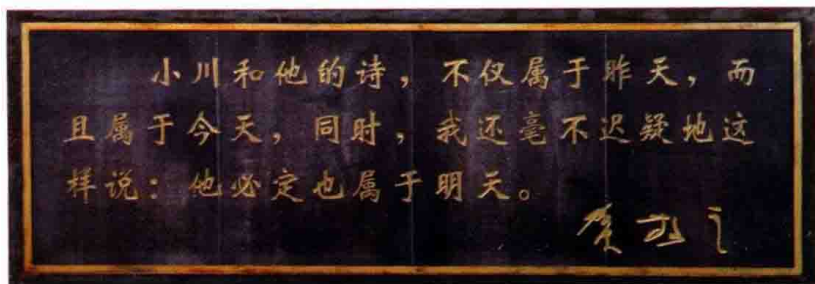 小川和他的诗，不仅属于昨天，而
且属于今天，同时，我还毫不迟疑地这
样说：他必定也属于明天。
贺敬之